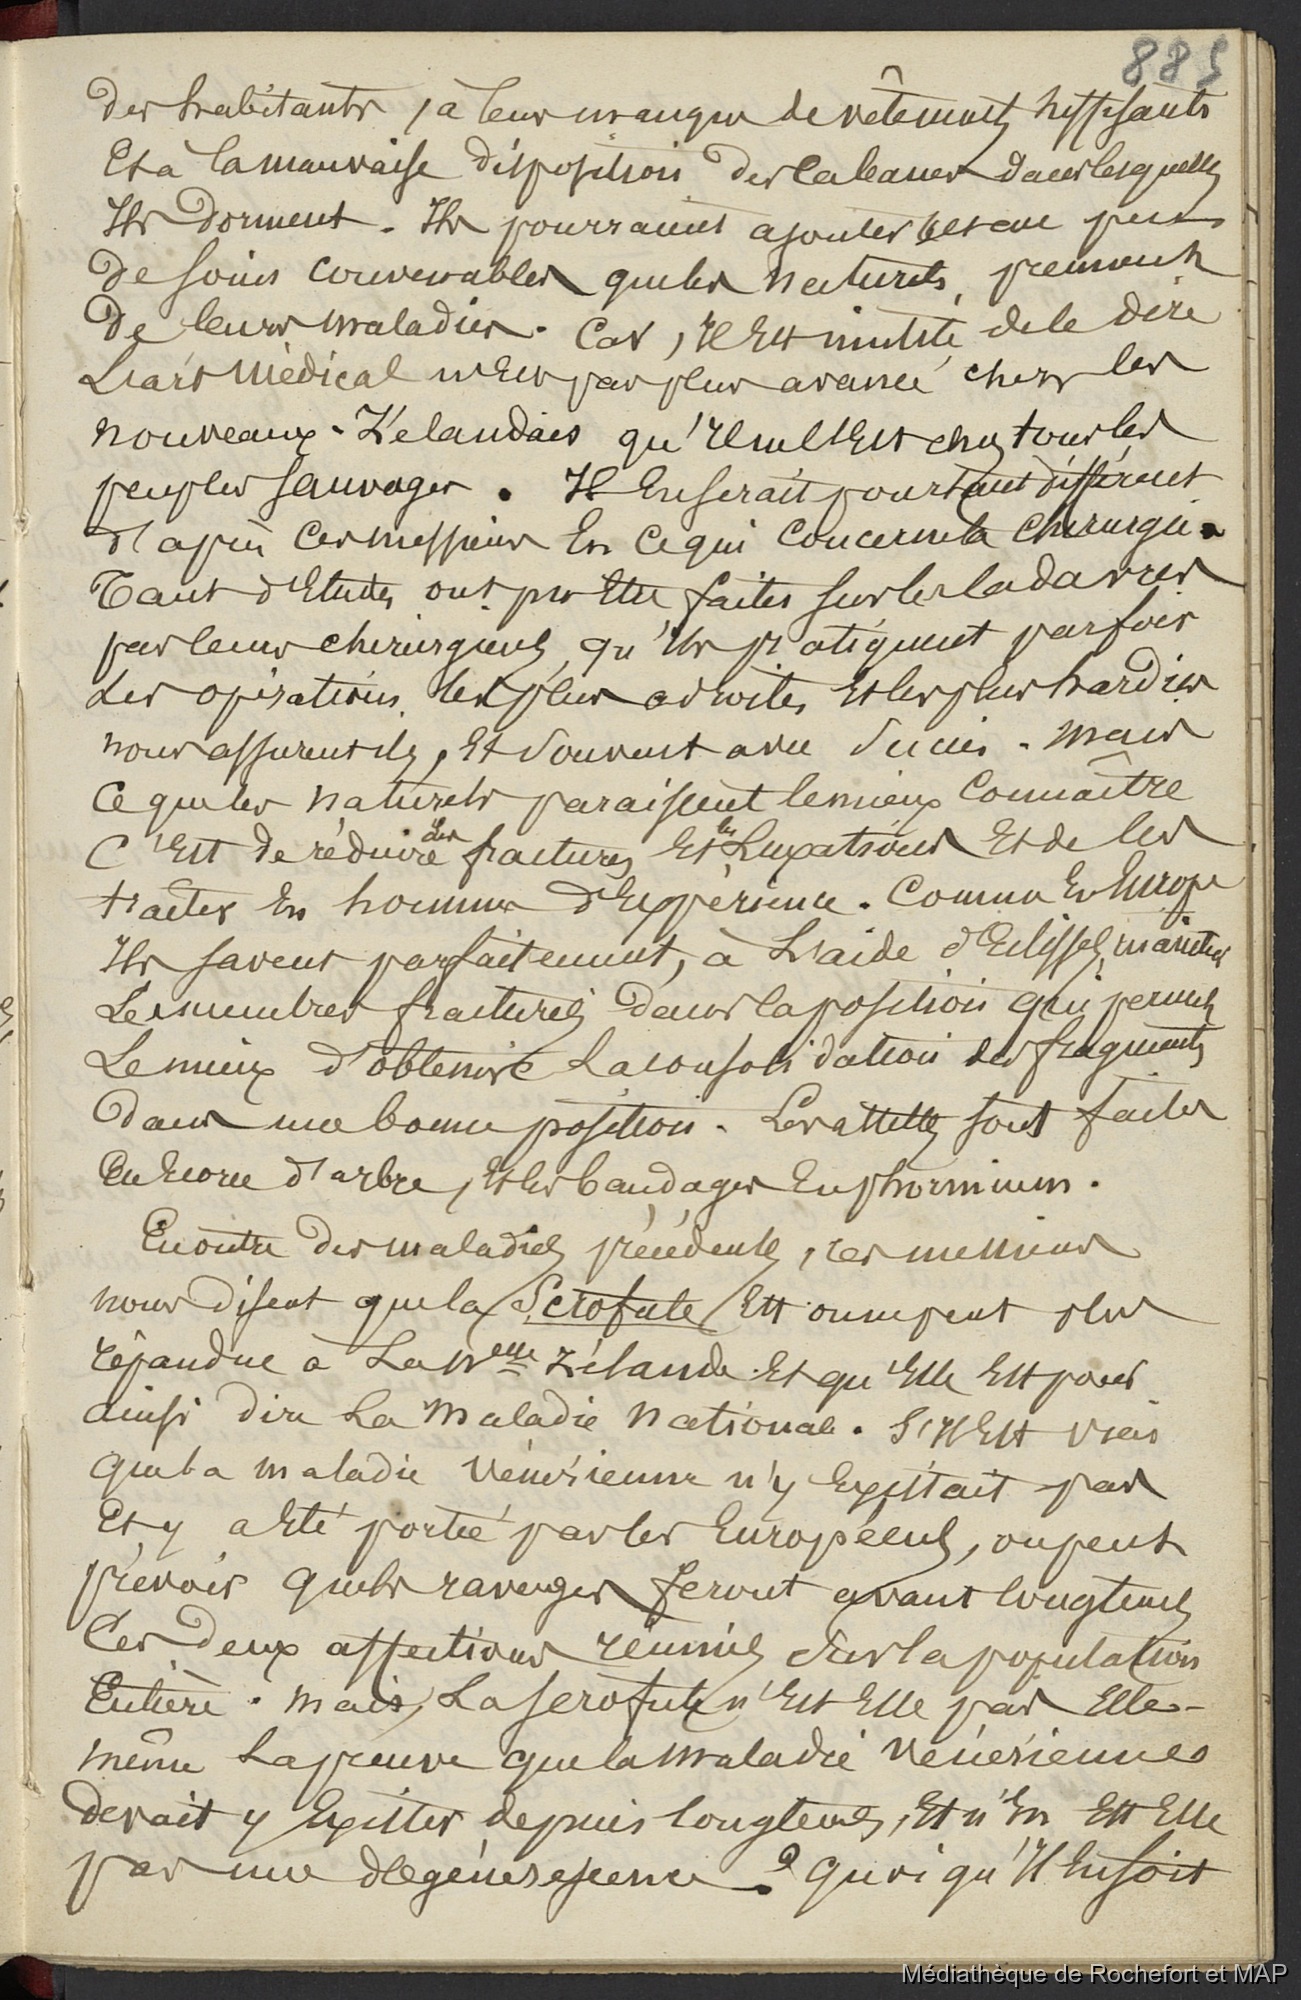 885
des habitants, à leur manque de vêtements suffisants
Et à la mauvaise disposition des cabanes dans lesquelles
Ils dorment. Ils pourraient ajouter et au peu
de soins convenables que les naturels, prennent
de leurs maladies. Car, Il Est inutile de le dire
L'art Médical n'Est pas plus avancé chez les
nouveaux-Zélandais qu'Il ne l'Est chez tous les
peuples sauvages. Il En serait pourtant différent
d'après ces messieurs En ce qui concerne la chirurgie.
Tant d'Etudes ont pu Etre faites sur les cadavres
par leurs chirurgiens, qu'Ils pratiquent parfois
des opérations les plus adroites, Et les plus hardies
nous assurent ils, Et souvent avec succès. Mais
ce que les naturels paraissent le mieux connaître
C'Est de réduire les fractures Et les Luxations Et de les
traiter En hommes d'Expérience. Comme En Europe
Ils savent parfaitement, à L'aide d'Eclisses, maintenir
Les membres fracturés dans la position qui permet
Le mieux d'obtenir La consolidation des fragments
dans une bonne position. Les attelles sont faites
En Ecorce d'arbre, Et les bandages En phormium.
En outre des maladies précédentes, ces messieurs
nous disent que la Scrofule Est on ne peut plus
répandue à La Nelle Zélande Et qu'Elle Est pour
ainsi dire La Maladie Nationale. S'Il Est vrai
que la maladie Vénérienne n'y Existait pas
Et y a Eté portée par les Européens, on peut
prévoir quels ravages feront avant longtemps
Ces deux affections réunies sur la population
Entière. Mais, La scrofule n'Est Elle pas Elle-
même La preuve que la Maladie Vénérienne
devait y Exister depuis longtemps, Et n'En Est Elle
pas une dégénérescence ? Quoi qu'Il En soit
Médiathèque de Rochefort et MAP